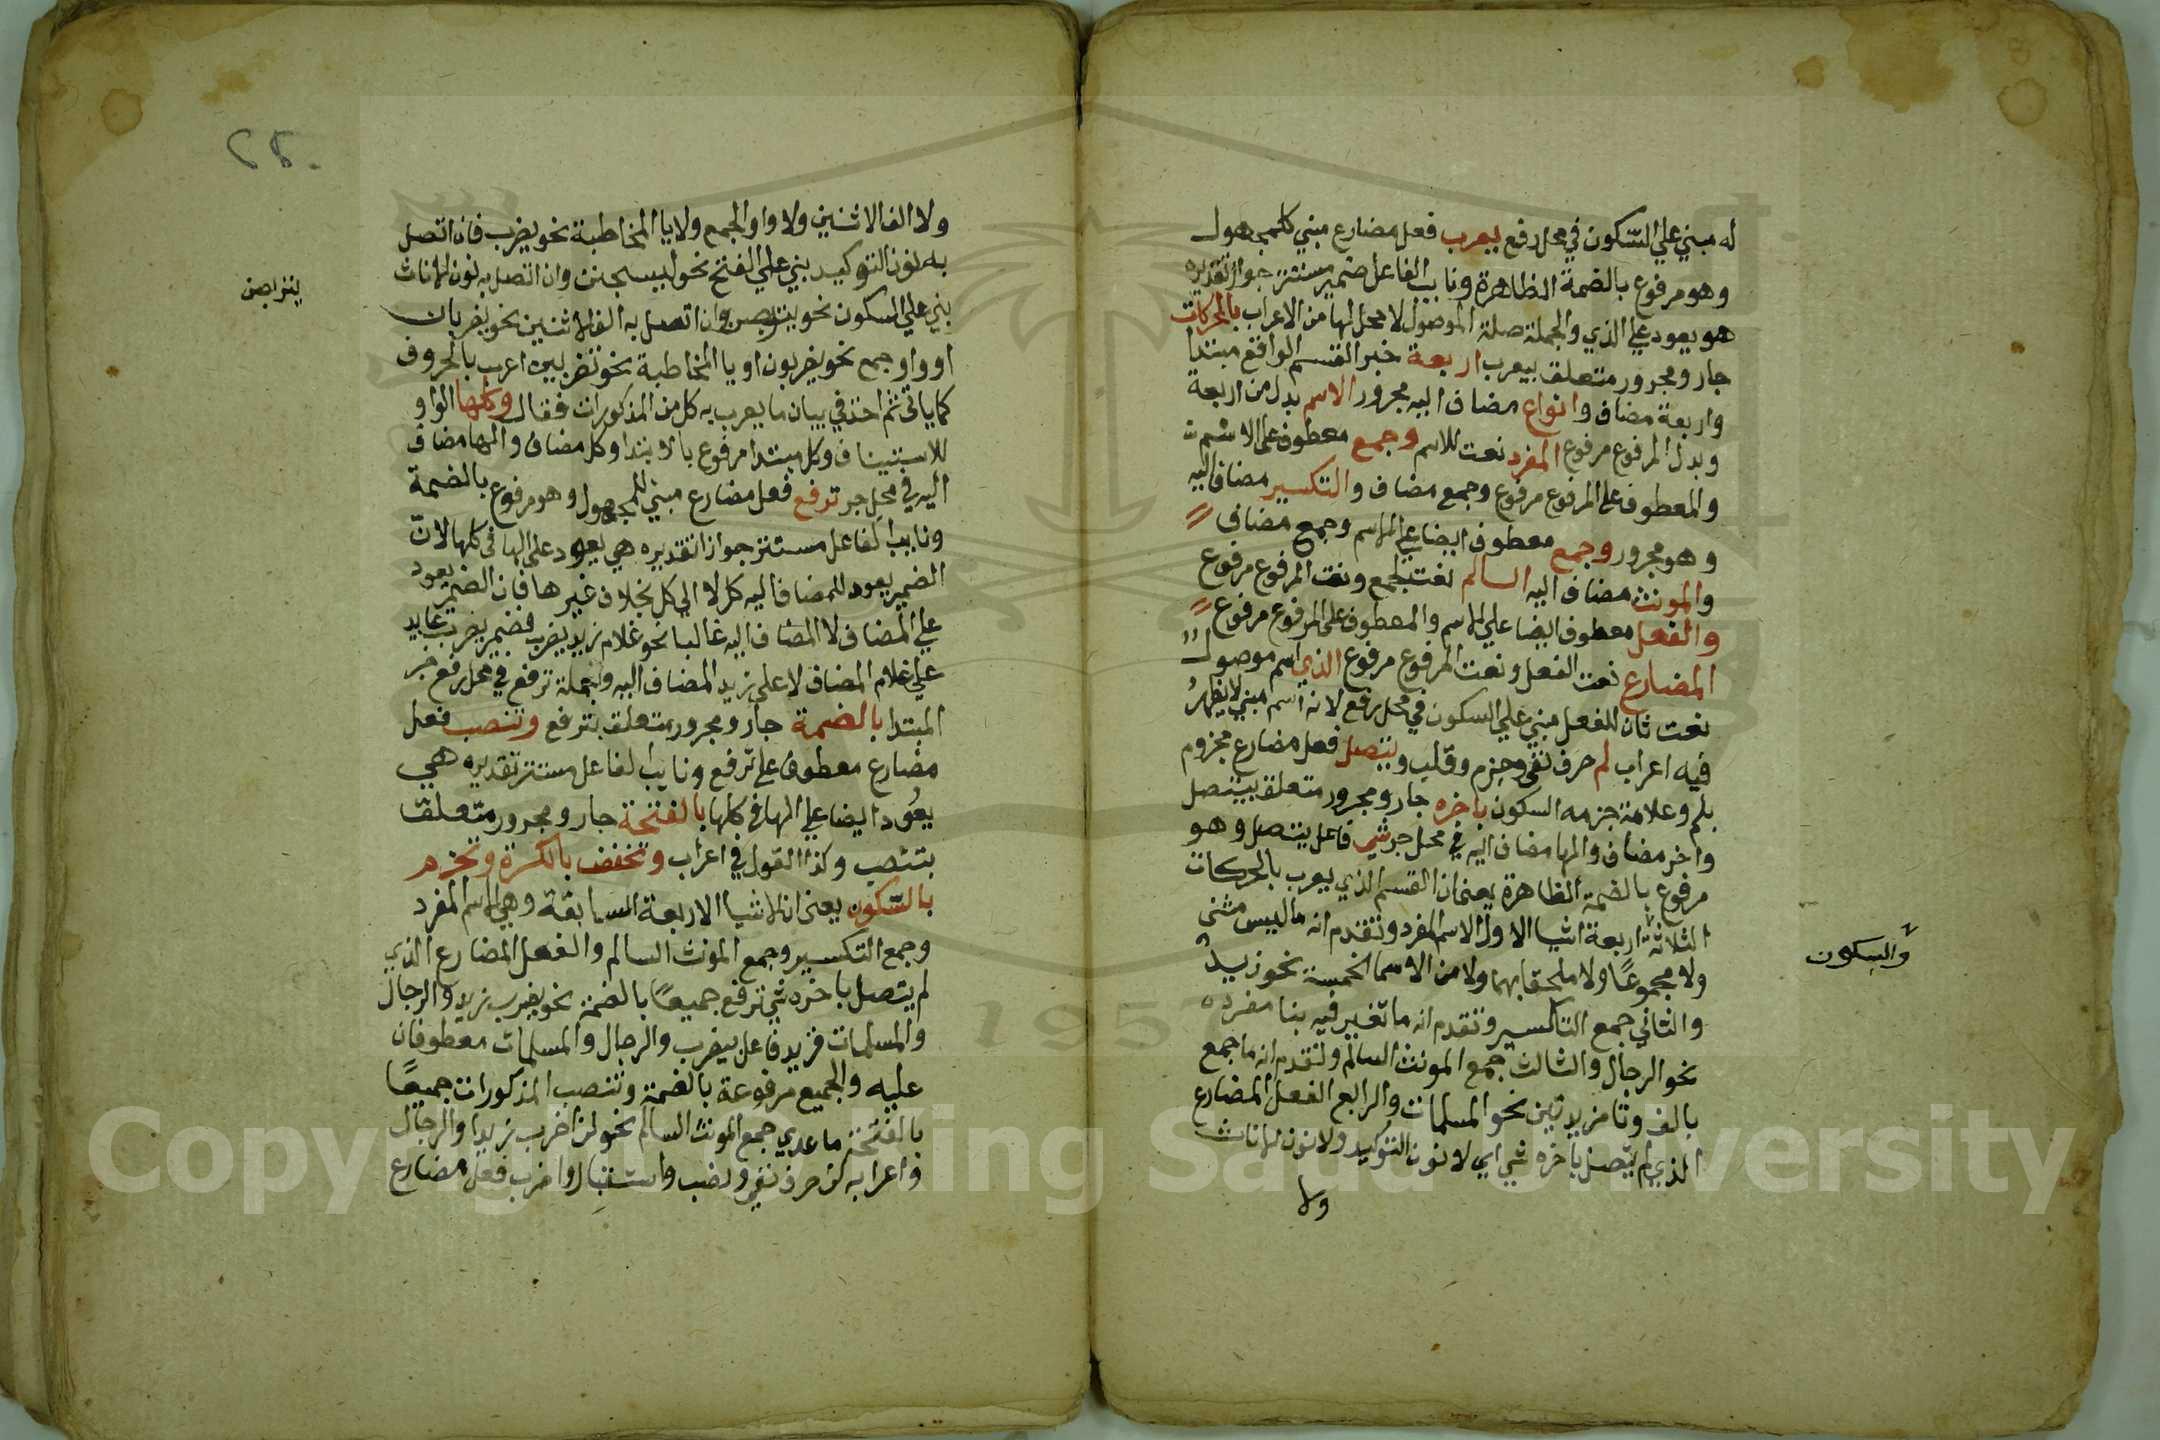 له مبني علي السكون في محل رفع يعرب فعل مضارع مبني كلمجهول
وهو مرفوع بالضمة الظاهرة ونايب الفاعل ضمير مستتر جوازا تقديره
هو يعود علي الذي والجملة صلة الموصول لا محل لها من الاعراب بالحركات
جار ومجرور متعلق بيعرب اربعة خبر القسم الواقع مبتدا
واربعة مضاف وانواع مضاف اليه مجرور الاسم بدل من اربعة
وبدل المرفوع مرفوع المفرد نعت للاسم وجمع معطوف على الاسم
والمعطوف على المرفوع مرفوع وجمع مضاف والتكسير مضاف اليه
وهو مجرور وجمع معطوف ايضا علي الاسم وجمع مضاف
والمونث مضاف اليه السالم نعت لجمع ونعت المرفوع مرفوع
والفعل معطوف ايضا علي الاسم والمعطوف على المرفوع مرفوع
المضارع نعت الفعل ونعت المرفوع مرفوع الذي اسم موصول
نعت ثان للفعل مبني علي السكون في محل رفع لانه اسم مبني لا يظهر
فيه اعراب لم حرف نفي وجزم وقلب ويتصل فعل مضارع مجزوم
بلم وعلامة جزمه السكون باخره جار ومجرور متعلق بيتصل
واخر مضاف والها مضاف اليه في محل جر شي فاعل يتصل وهو
مرفوع بالضمة الظاهرة يعني ان القسم الذي يعرب بالحركات
الثلاثة اربعة اشيا الاول الاسم المفرد وتقدم انه ما ليس مثنى
والسكون
ولا مجموعا ولا ملحقا بهما ولا من الاسما الخمسة نحو زيد
والثاني جمع التكسير وتقدم انه ما تغير فيه بنا مفرده
نحو الرجال والثالث جمع المونث السالم وتقدم انه ما جمع
بالف وتا مزيدتين نحو المسلمات والرابع الفعل المضارع
الذي لم يتصل باخره شي اي لا نون التوكيد ولا نون الاناث
ولا
ولا الف الاثنين ولا واو الجمع ولا يا المخاطبة نحو يضرب فان اتصل
به نون التوكيد بني علي الفتح نحو ليسجنن وان اتصل به نون الاناث
يتربصن
بني علي السكون نحو يتربصن وان اتصل به الف الاثنين نحو يضربان
او واو جمع نحو يضربون او يا المخاطبة نحو تضربين اعرب بالحروف
كما ياتى ثم اخذ في بيان ما يعرب به كل من المذكورات فقال وكلها الواو
للاستيناف وكل مبتدا مرفوع بالابتدا وكل مضاف والها مضاف
اليه في محل جر ترفع فعل مضارع مبني للمجهول وهو مرفوع بالضمة
ونايب الفاعل مستتر جوازا تقديره هي يعود على الها في كلها لان
الضمير يعود للمضاف اليه كل لا الى كل بخلاف غيرها فان الضمير يعود
علي المضاف لا المضاف اليه غالبا نحو غلام زيد يضرب فضمير يضرب عايد
علي غلام المضاف لا على زيد المضاف اليه وجملة ترفع في محل رفع خبر
المبتدا بالضمة جار ومجرور متعلق بترفع وتنصب فعل
مضارع معطوف علي ترفع ونايب الفاعل مستتر تقديره هي
يعود ايضا علي الها في كلها بالفتحة جار ومجرور متعلق
بتنصب وكذا القول في اعراب وتخفض بالكسرة وتجزم
بالسكون يعني ان الاشيا الاربعة السابقة وهي الاسم المفرد
وجمع التكسير وجمع المونث السالم والفعل المضارع الذي
لم يتصل باخره شي ترفع جميعا بالضمة نحو يضرب زيد والرجال
والمسلمات فزيد فاعل بيضرب والرجال والمسلمات معطوفان
عليه والجميع مرفوعة بالضمة وتنصب المذكورات جميعا
بالفتحة ما عدي جمع المونث السالم نحو لن اضرب زيدا والرجال
واعرابه لن حرف نفي ونصب واستقبال واضرب فعل مضارع
1957
Copyright © King Saud University